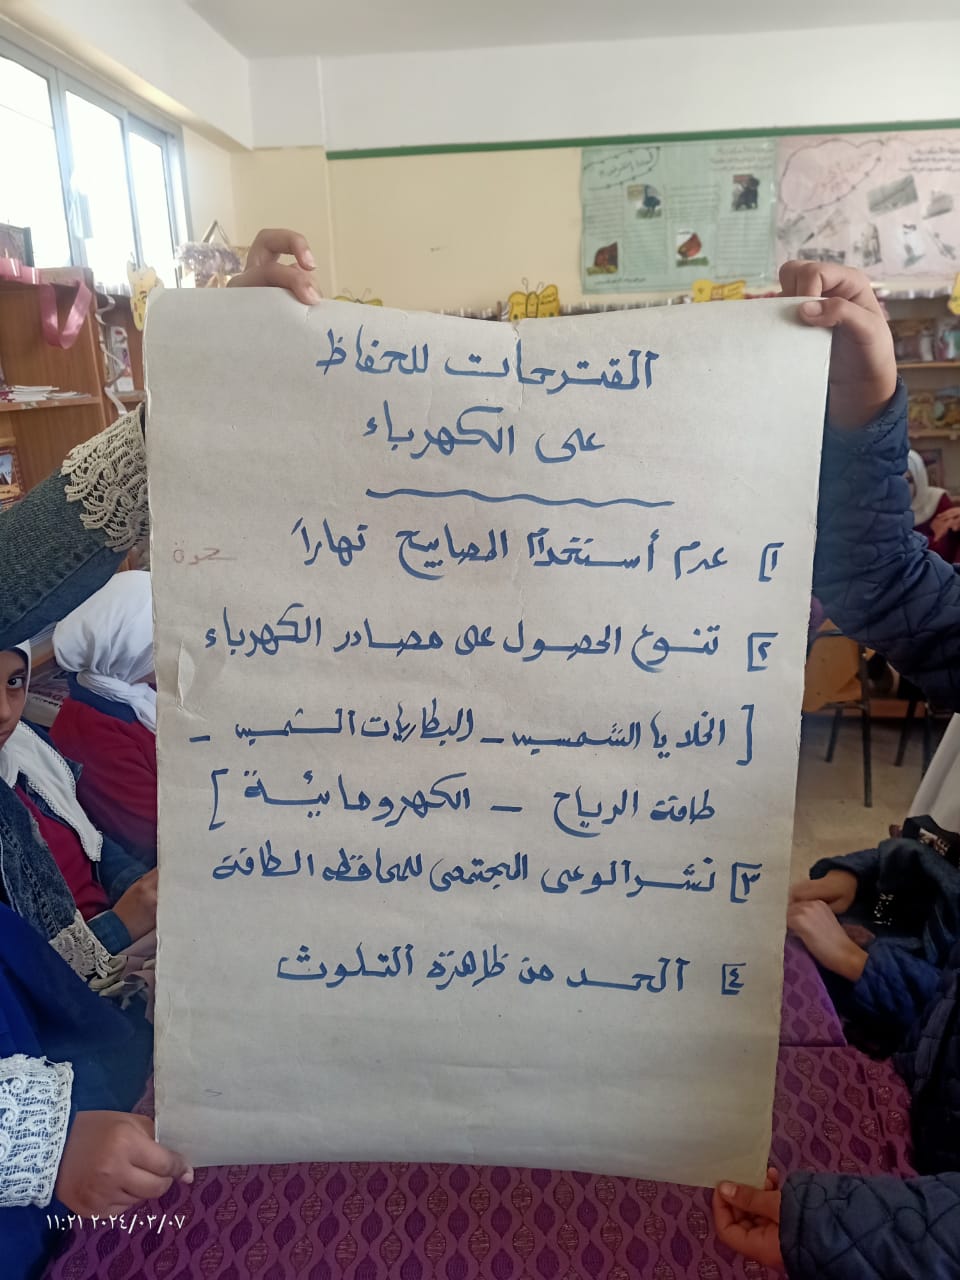 المقترحات للحفاظ
على الكهرباء
١] عدم أستخدام المصابيح نهاراً
٢] تنوع الحصول على مصادر الكهرباء
[ الخلايا الشمسيه - البطاريات الشمسيه -
طاقة الرياح - الكهرومائية ]
٣] نشر الوعى المجتمعى للمحافظه الطاقة
٤] الحد من ظاهرة التلوث
١١:٢١ ٢٠٢٤/٠٣/٠٧